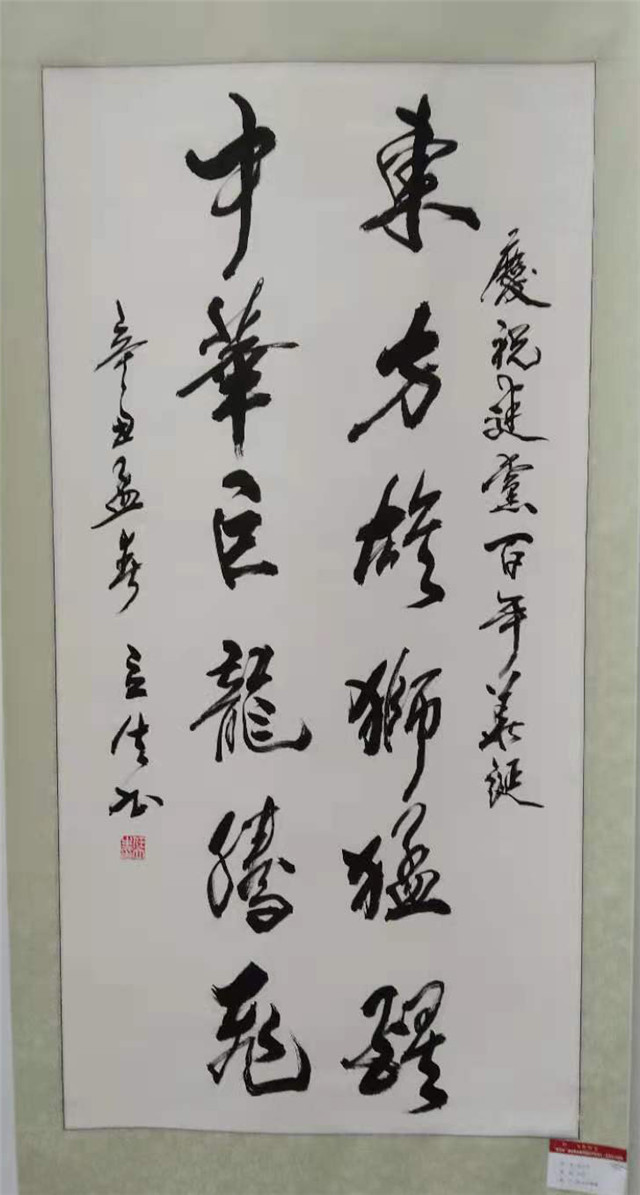 慶祝建黨百年美誕
東方雄獅猛醒
中華巨龍騰飛
辛丑孟春 立生书